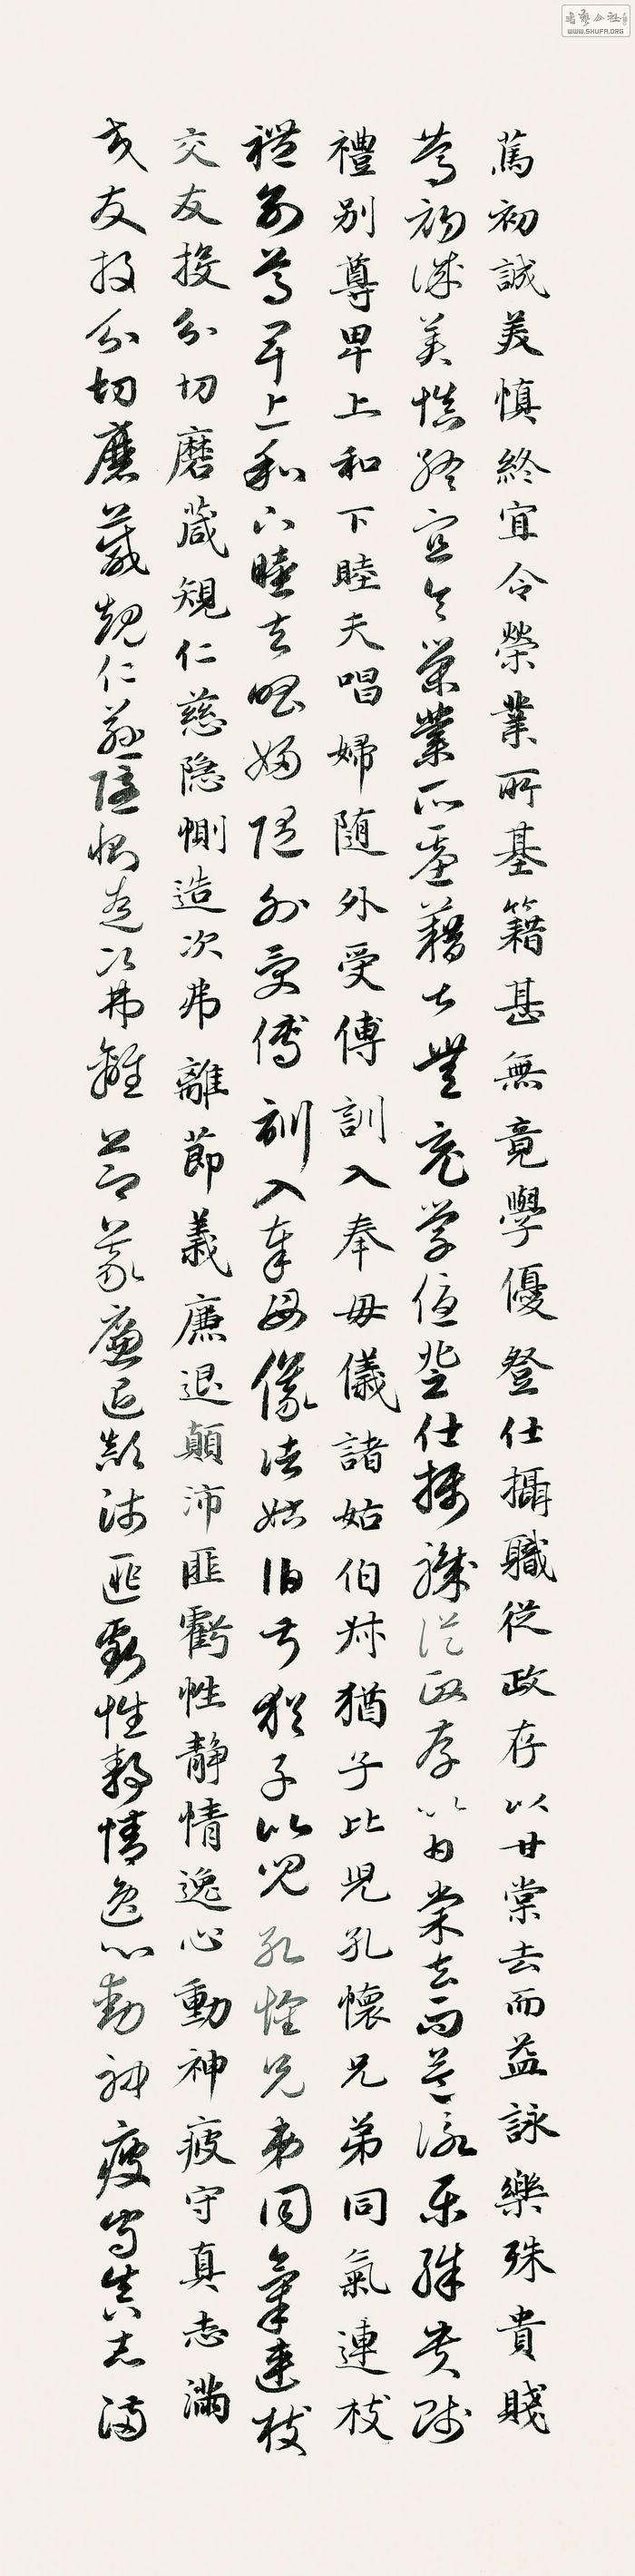 篤初誠美慎終宜令榮業所基籍甚無竟學優登仕攝職從政存以甘棠去而益詠樂殊貴賤
篤初誠美慎終宜令榮業所基藉甚無竟學優登仕攝職從政存以甘棠去而益詠樂殊貴賤
禮別尊卑上和下睦夫唱婦随外受傅訓入奉母儀諸姑伯叔猶子比兒孔懷兄弟同氣連枝
禮別尊卑上和下睦夫唱婦隨外受傅訓入奉母儀諸姑伯叔猶子比兒孔懷兄弟同氣連枝
交友投分切磨箴規仁慈隐惻造次弗離節義廉退顛沛匪虧性静情逸心動神疲守真志滿
交友投分切磨箴規仁慈隱惻造次弗離節義廉退顛沛匪虧性靜情逸心動神疲守真志滿
書藝公社
WWW.SHUFA.ORG